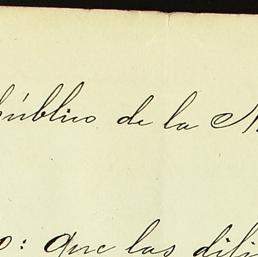 público de la N
o: Que las dili